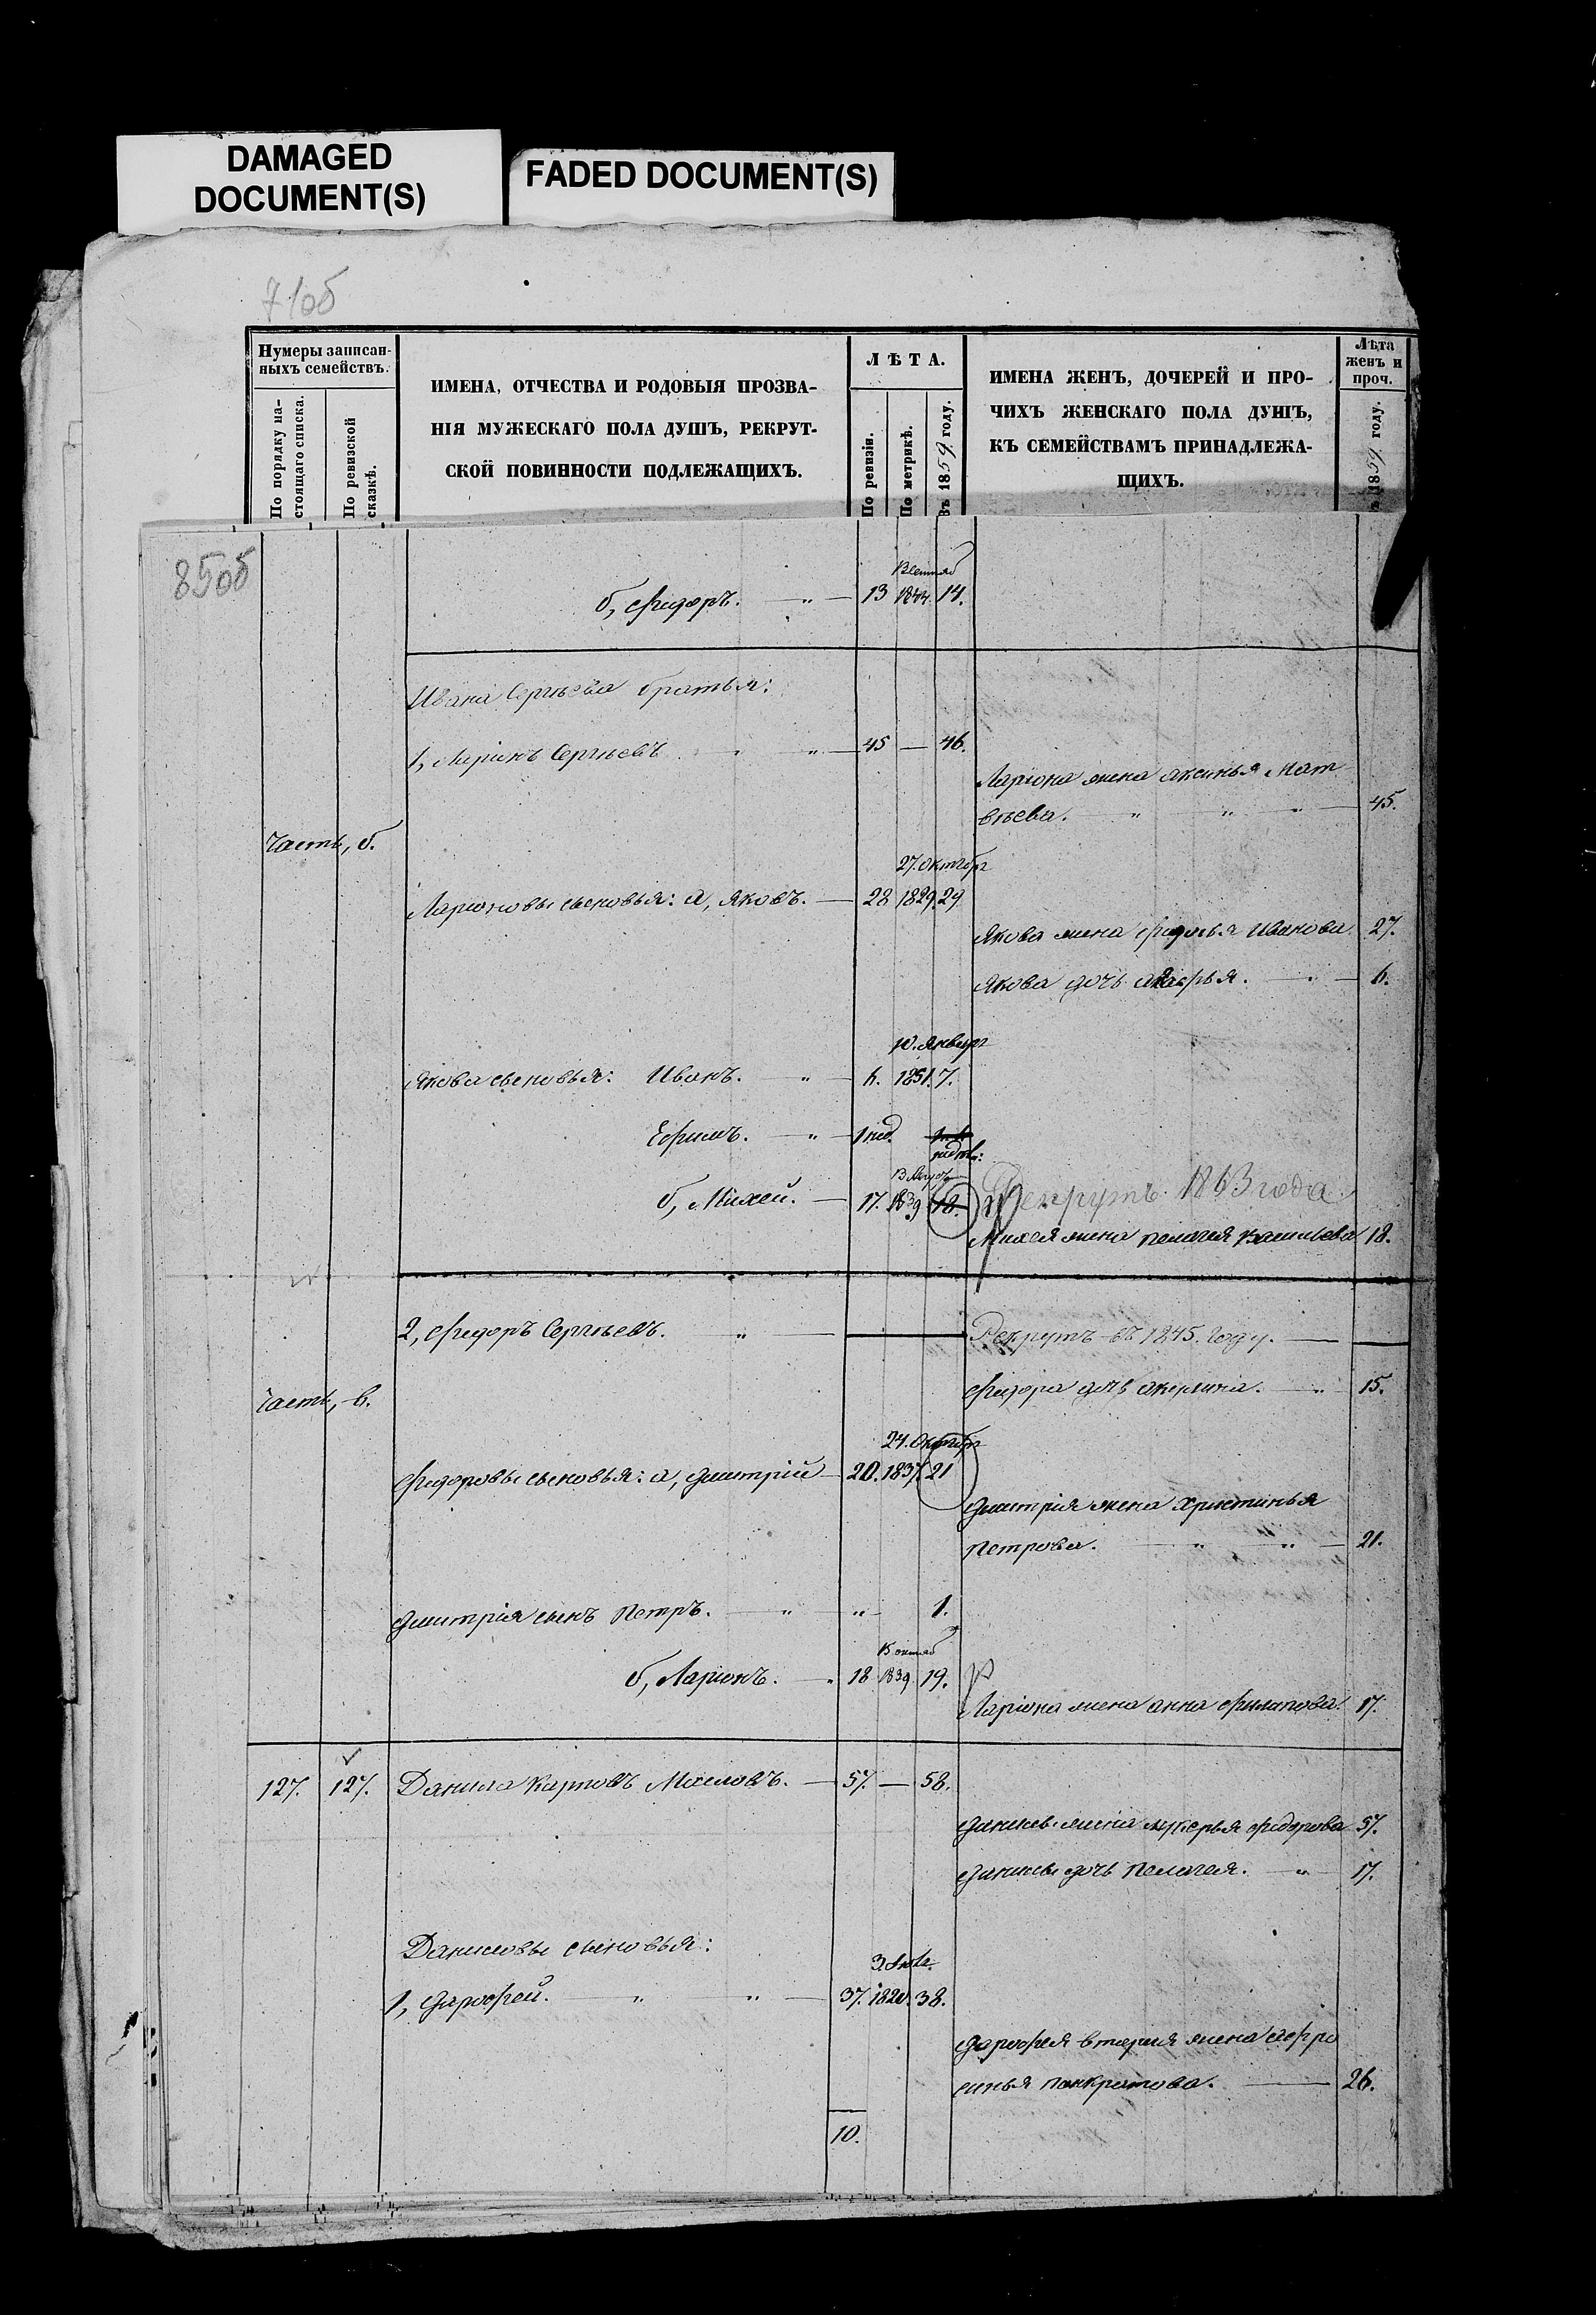 DAMAGED
DOCUMENT(S)
FADED DOCUMENT(S)
71об
Нумеры записан-
ныхъ семействъ.
По порядку на-
стоящаго списка.
По ревизской
сказкѣ.
ИМЕНА, ОТЧЕСТВА И РОДОВЫЯ ПРОЗВА-
НІЯ МУЖЕСКАГО ПОЛА ДУШЪ, РЕКРУТ-
СКОЙ ПОВИННОСТИ ПОДЛЕЖАЩИХЪ.
ЛѢТА.
По ревизіи.
По метрикѣ.
Въ 1859 году.
ИМЕНА ЖЕНЪ, ДОЧЕРЕЙ И ПРО-
ЧИХЪ ЖЕНСКАГО ПОЛА ДУШЪ,
КЪ СЕМЕЙСТВАМЪ ПРИНАДЛЕЖА-
ЩИХЪ.
Лѣта
женъ и
проч.
ъ 1859 году.
85об
б, Фидоръ. — „ — 13 1844. 14.
Ивана Сергѣева братья:
1, Ларіонъ Сергѣевъ „ „ — 45 — 46.
Ларіона жена Аксинья Мат
вѣева. „ „ „ — 45.
Часть, б.
27. Октябр
Ларіоновы сыновья: а, Яковъ. — 28 1829. 29
Якова жена Фидосья Иванова. 27.
Якова дочь — „ — 6.
10. Январ
Якова сыновья: Иванъ. — „ — 6. 1851. 7.
Ефимъ. — „ — 1 нед.
б, Михей. — 17. 1839 18. Рекрутъ 1863 года
Михея жена Пелагея Васильева 18.
2, Фидоръ Сергѣевъ. „ — Рекрутъ въ 1845. году. —
Фидора дочь Акулина. — „ 15.
Часть, в.
24. Октябр
Фидоровы сыновья: а, Дмитрій — 20. 1837. 21
Дмитрія жена Христинья
Петрова. „ „ — 21.
Дмитрія сынъ Петръ. — „ — „ — 1.
б, Ларіонъ. — „ 18 1839. 19.
Ларіона жена Анна Филипова. 17.
127. 127. Данила Карповъ Масловъ. — 57. — 58.
Данилы жена Лукерья Фидорова 57.
Данилы дочь Пелагея. — „ — 17.
Даниловы сыновья:
1, Дарофей. — „ „ — 37. 1820. 38.
Дарофея вторая жена Ефро
синья Панкратова. — 26.
10.